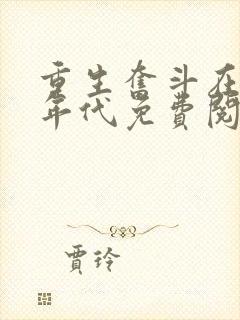 重生奋斗在
年代免费阅
贾玲